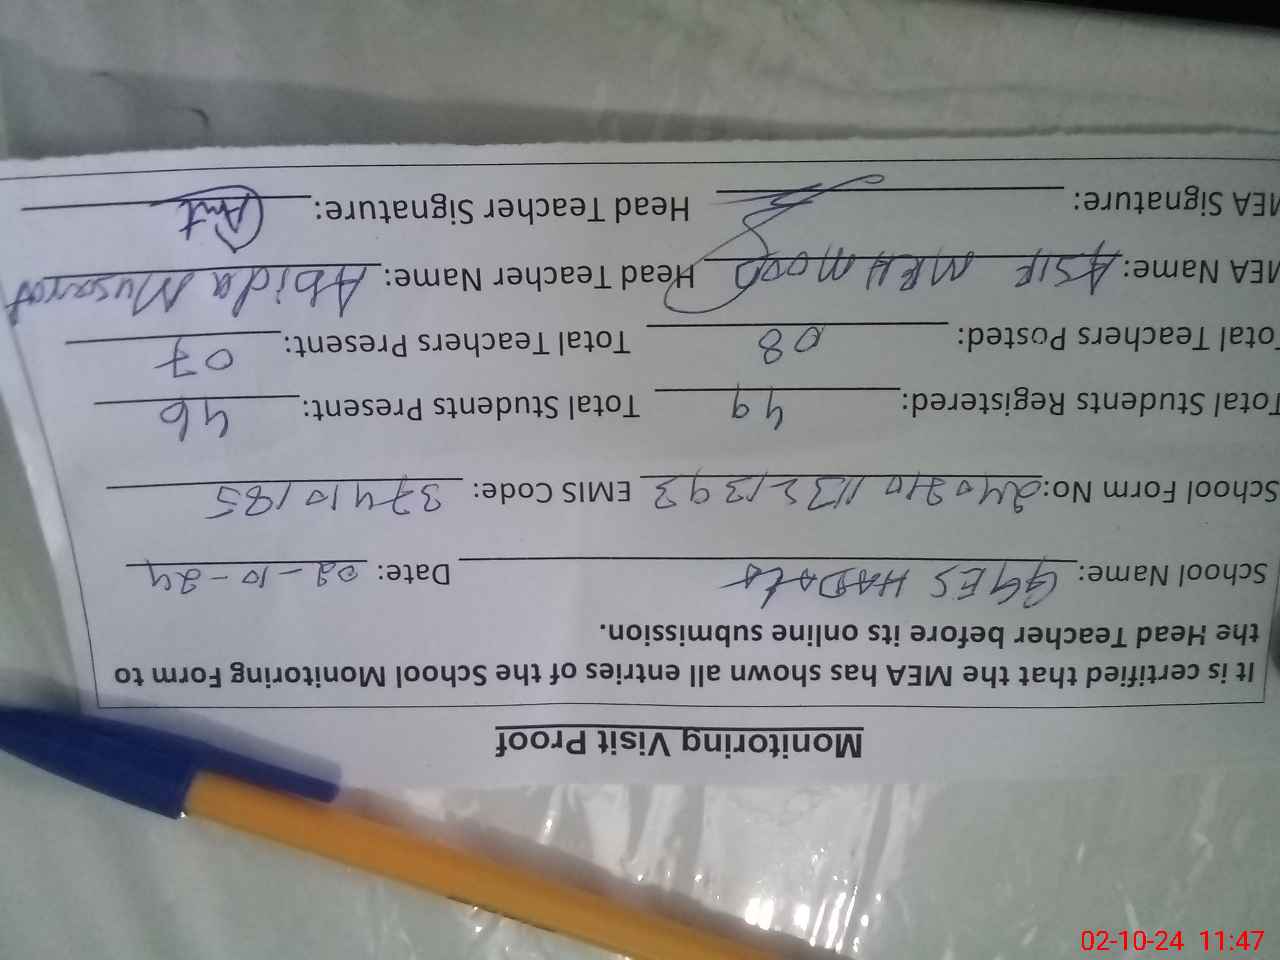 Monitoring Visit Proof
It is certified that the MEA has shown all entries of the School Monitoring Form to
the Head Teacher before its online submission.
School Name: GGES HADALA Date: 02-10-24
School Form No: 2402101132 1393 EMIS Code: 37410185
Total Students Registered: 49 Total Students Present: 46
Total Teachers Posted: 08 Total Teachers Present: 07
MEA Name: ASIF MEHMOOD Head Teacher Name: Abida Musarrat
MEA Signature: Head Teacher Signature:
02-10-24 11:47